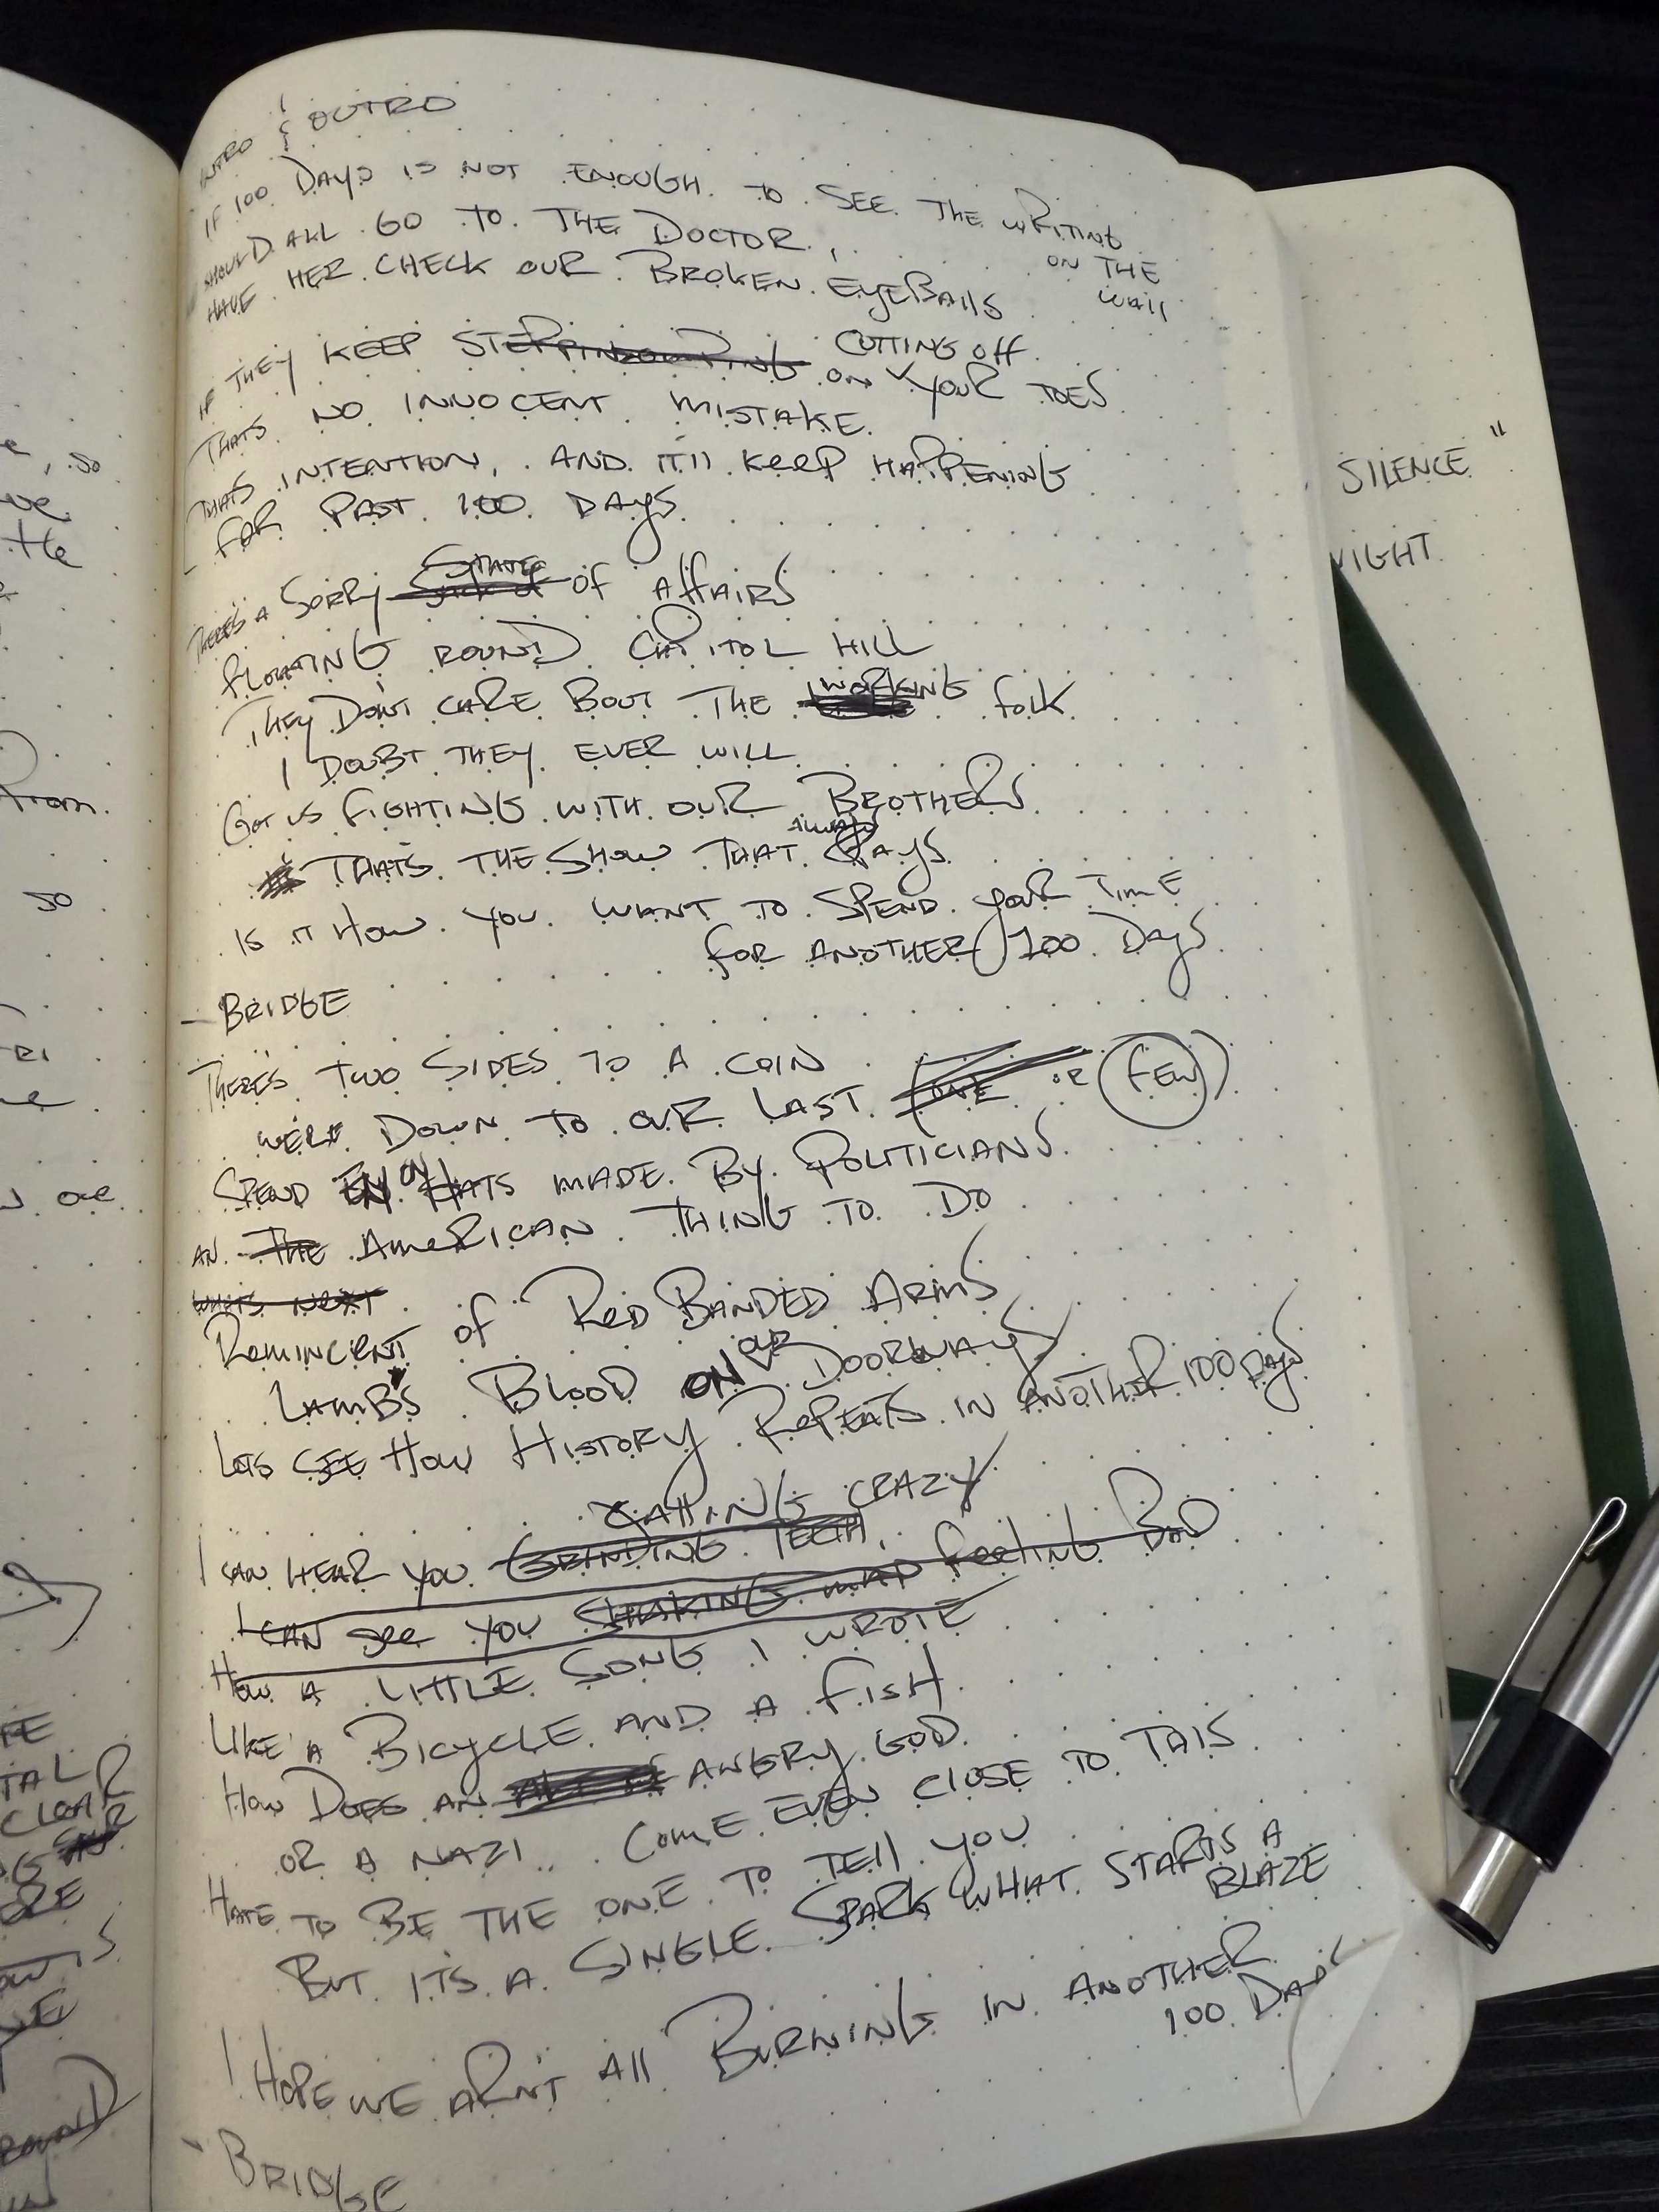 INTRO & OUTRO
IF 100 DAYS IS NOT ENOUGH TO SEE THE WRITING
ON THE
WAll
SHOULD ALL GO TO THE DOCTOR,
HAVE HER CHECK OUR BROKEN EyEBAllS
CUTTING Off
IF THEY KEEP STEPPIN ON YOUR TOES
THATS NO INNOCENT MISTAKE.
THATS INTENTION, AND IT'll KEEP HAPPENING
FOR PAST 100 DAYS
STATE
THERE'S A SORRY Of AffAIRS
flOATING ROUND CAPITOL HILL
WORKING
THEY DON'T CARE BOUT THE folK
I DOUBT THEY EVER WILL
GOT US FIGHTING WITH OUR BROTHERS
ALWAYS
THATS THE SHOW THAT PAYS
IS IT HOW YOU WANT TO SPEND YOUR TIME
for ANOTHER 100 DAYS
- BRIDGE
THERE'S TWO SIDES TO A COIN
WERE DOWN TO OUR LAST (ONE OR FEW)
ON
SPEND HATS MADE BY POLITICIANS
AN THE AMERICAN THING TO DO
WHATS NEXT
REMINCENT of RED BANDED ARMS
OUR
LAMB'S BLOOD ON DOORWAYS
LETS SEE HOW HISTORY REPEATS IN ANOTHER 100 DAYS
CRAZY
I CAN HEAR YOU GRINDING TEETH,
I CAN SEE YOU SHAKING MAD feeling BAD
HOW A LITTLE SONG I WROTE
LIKE A BICYCLE AND A fISH
HOW DOES AN ANGRY GOD
OR A NAZI .. COME EVEN CLOSE TO THIS
HATE TO BE THE ONE TO TEll YOU
BUT ITS A SINGLE SPARK WHAT STARTS A
BLAZE
I HOPE WE ARN'T All BURNING IN ANOTHER
100 DAYS
- BRIDGE
SILENCE "
NIGHT
, so
ve
the
from
so
one
TAL
CLEAR